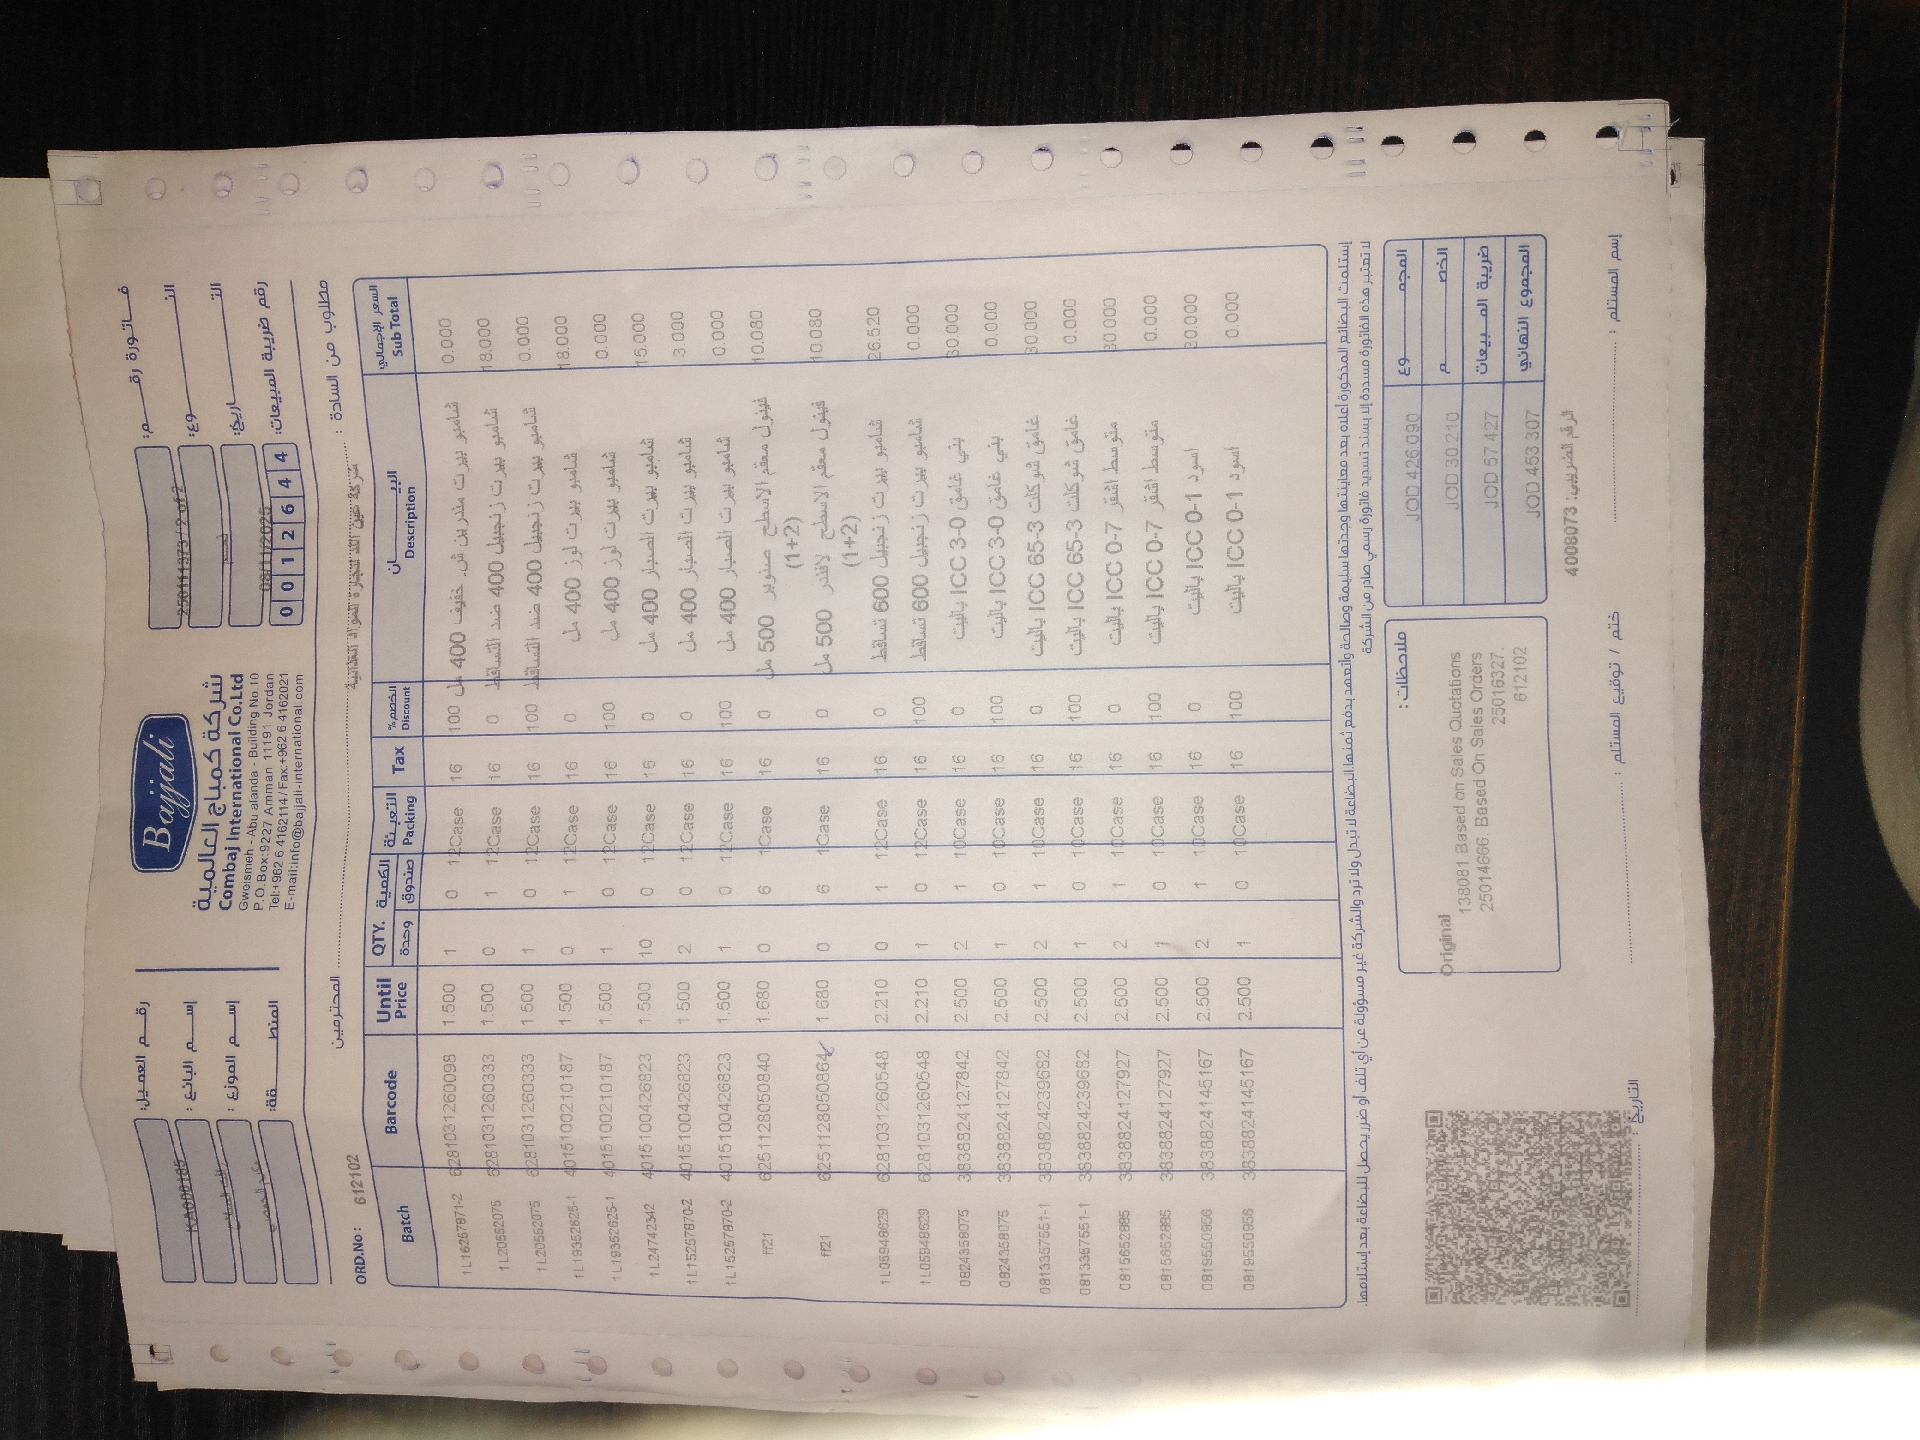 Bajjali
شركة كمباج العالمية
Combaj International Co.Ltd
Gweismeh - Abu alanda - Building No.10
P.O.Box:9227 Amman 11191 Jordan
Tel:+962 6 4162114/Fax:+962 6 4162021
E-mail:info@bajjali-international.com
رقم العميل: KA000185
إسم البائع :
إسم الموزع :
المنطقة:
فاتورة رقم: 25011373 / 2 of 2
النوع:
التاريخ: 08/11/2025
رقم ضريبة المبيعات: 0 0 1 2 6 4 4
مطلوب من السادة : المحترمين
ORD.No: 612102
Batch Barcode Until Price QTY. الكمية وحدة صندوق التعبئة Packing Tax الخصم% Discount البيـــــان Description السعر الإجمالي Sub Total
1L16257871-2 6281031260098 1.500 1 0 12Case 16 100 شامبو بيرت مندرين ش. خفيف 400 مل 0.000
1L20552075 6281031260333 1.500 0 1 12Case 16 0 شامبو بيرت زنجبيل 400 ضد التساقط 18.000
1L20552075 6281031260333 1.500 1 0 12Case 16 100 شامبو بيرت زنجبيل 400 ضد التساقط 0.000
1L19352625-1 4015100210187 1.500 0 1 12Case 16 0 شامبو بيرت لوز 400 مل 18.000
1L19352625-1 4015100210187 1.500 1 0 12Case 16 100 شامبو بيرت لوز 400 مل 0.000
1L24742342 4015100426823 1.500 10 0 12Case 16 0 شامبو بيرت الصبار 400 مل 15.000
1L15257870-2 4015100426823 1.500 2 0 12Case 16 0 شامبو بيرت الصبار 400 مل 3.000
1L15257870-2 4015100426823 1.500 1 0 12Case 16 100 شامبو بيرت الصبار 400 مل 0.000
ff21 6251128050840 1.680 0 6 1Case 16 0 فينول معقم الاسطح صنوبر 500 مل (1+2) 10.080
ff21 6251128050864 1.680 0 6 1Case 16 0 فينول معقم الاسطح لافندر 500 مل (1+2) 10.080
1L05948629 6281031260548 2.210 0 1 12Case 16 0 شامبو بيرت زنجبيل 600 تساقط 26.520
1L05948629 6281031260548 2.210 1 0 12Case 16 100 شامبو بيرت زنجبيل 600 تساقط 0.000
0824358075 3838824127842 2.500 2 1 10Case 16 0 بني غامق ICC 3-0 باليت 30.000
0824358075 3838824127842 2.500 1 0 10Case 16 100 بني غامق ICC 3-0 باليت 0.000
0813357551-1 3838824239682 2.500 2 1 10Case 16 0 غامق شوكلت ICC 65-3 باليت 30.000
0813357551-1 3838824239682 2.500 1 0 10Case 16 100 غامق شوكلت ICC 65-3 باليت 0.000
0815652885 3838824127927 2.500 2 1 10Case 16 0 متوسط اشقر ICC 0-7 باليت 30.000
0815652885 3838824127927 2.500 1 0 10Case 16 100 متوسط اشقر ICC 0-7 باليت 0.000
0819550956 3838824145167 2.500 2 1 10Case 16 0 اسود ICC 0-1 باليت 30.000
0819550956 3838824145167 2.500 1 0 10Case 16 100 اسود ICC 0-1 باليت 0.000
إستلمت البضائع المذكورة أعلاه بعد معاينتها وجدتها سليمة وصالحة وأتعهد بدفع ثمنها البضاعة لا تبدل ولا ترد والشركة غير مسؤولة عن أي تلف أو ضرر يحصل للبضاعة بعد إستلامها.
لا تعتبر هذه الفاتورة مسددة إلا بسند تسديد فاتورة رسمي صادر من الشركة
المجموع JOD 426.090
الخصم JOD 30.210
ضريبة المبيعات JOD 57.427
المجموع النهائي JOD 453.307
ملاحظات :
Original
138081 Based on Sales Quotations
25014666. Based On Sales Orders
25016327.
612102
الرقم الضريبي: 4008073
إسم المستلم :
ختم / توقيع المستلم :
التاريخ :